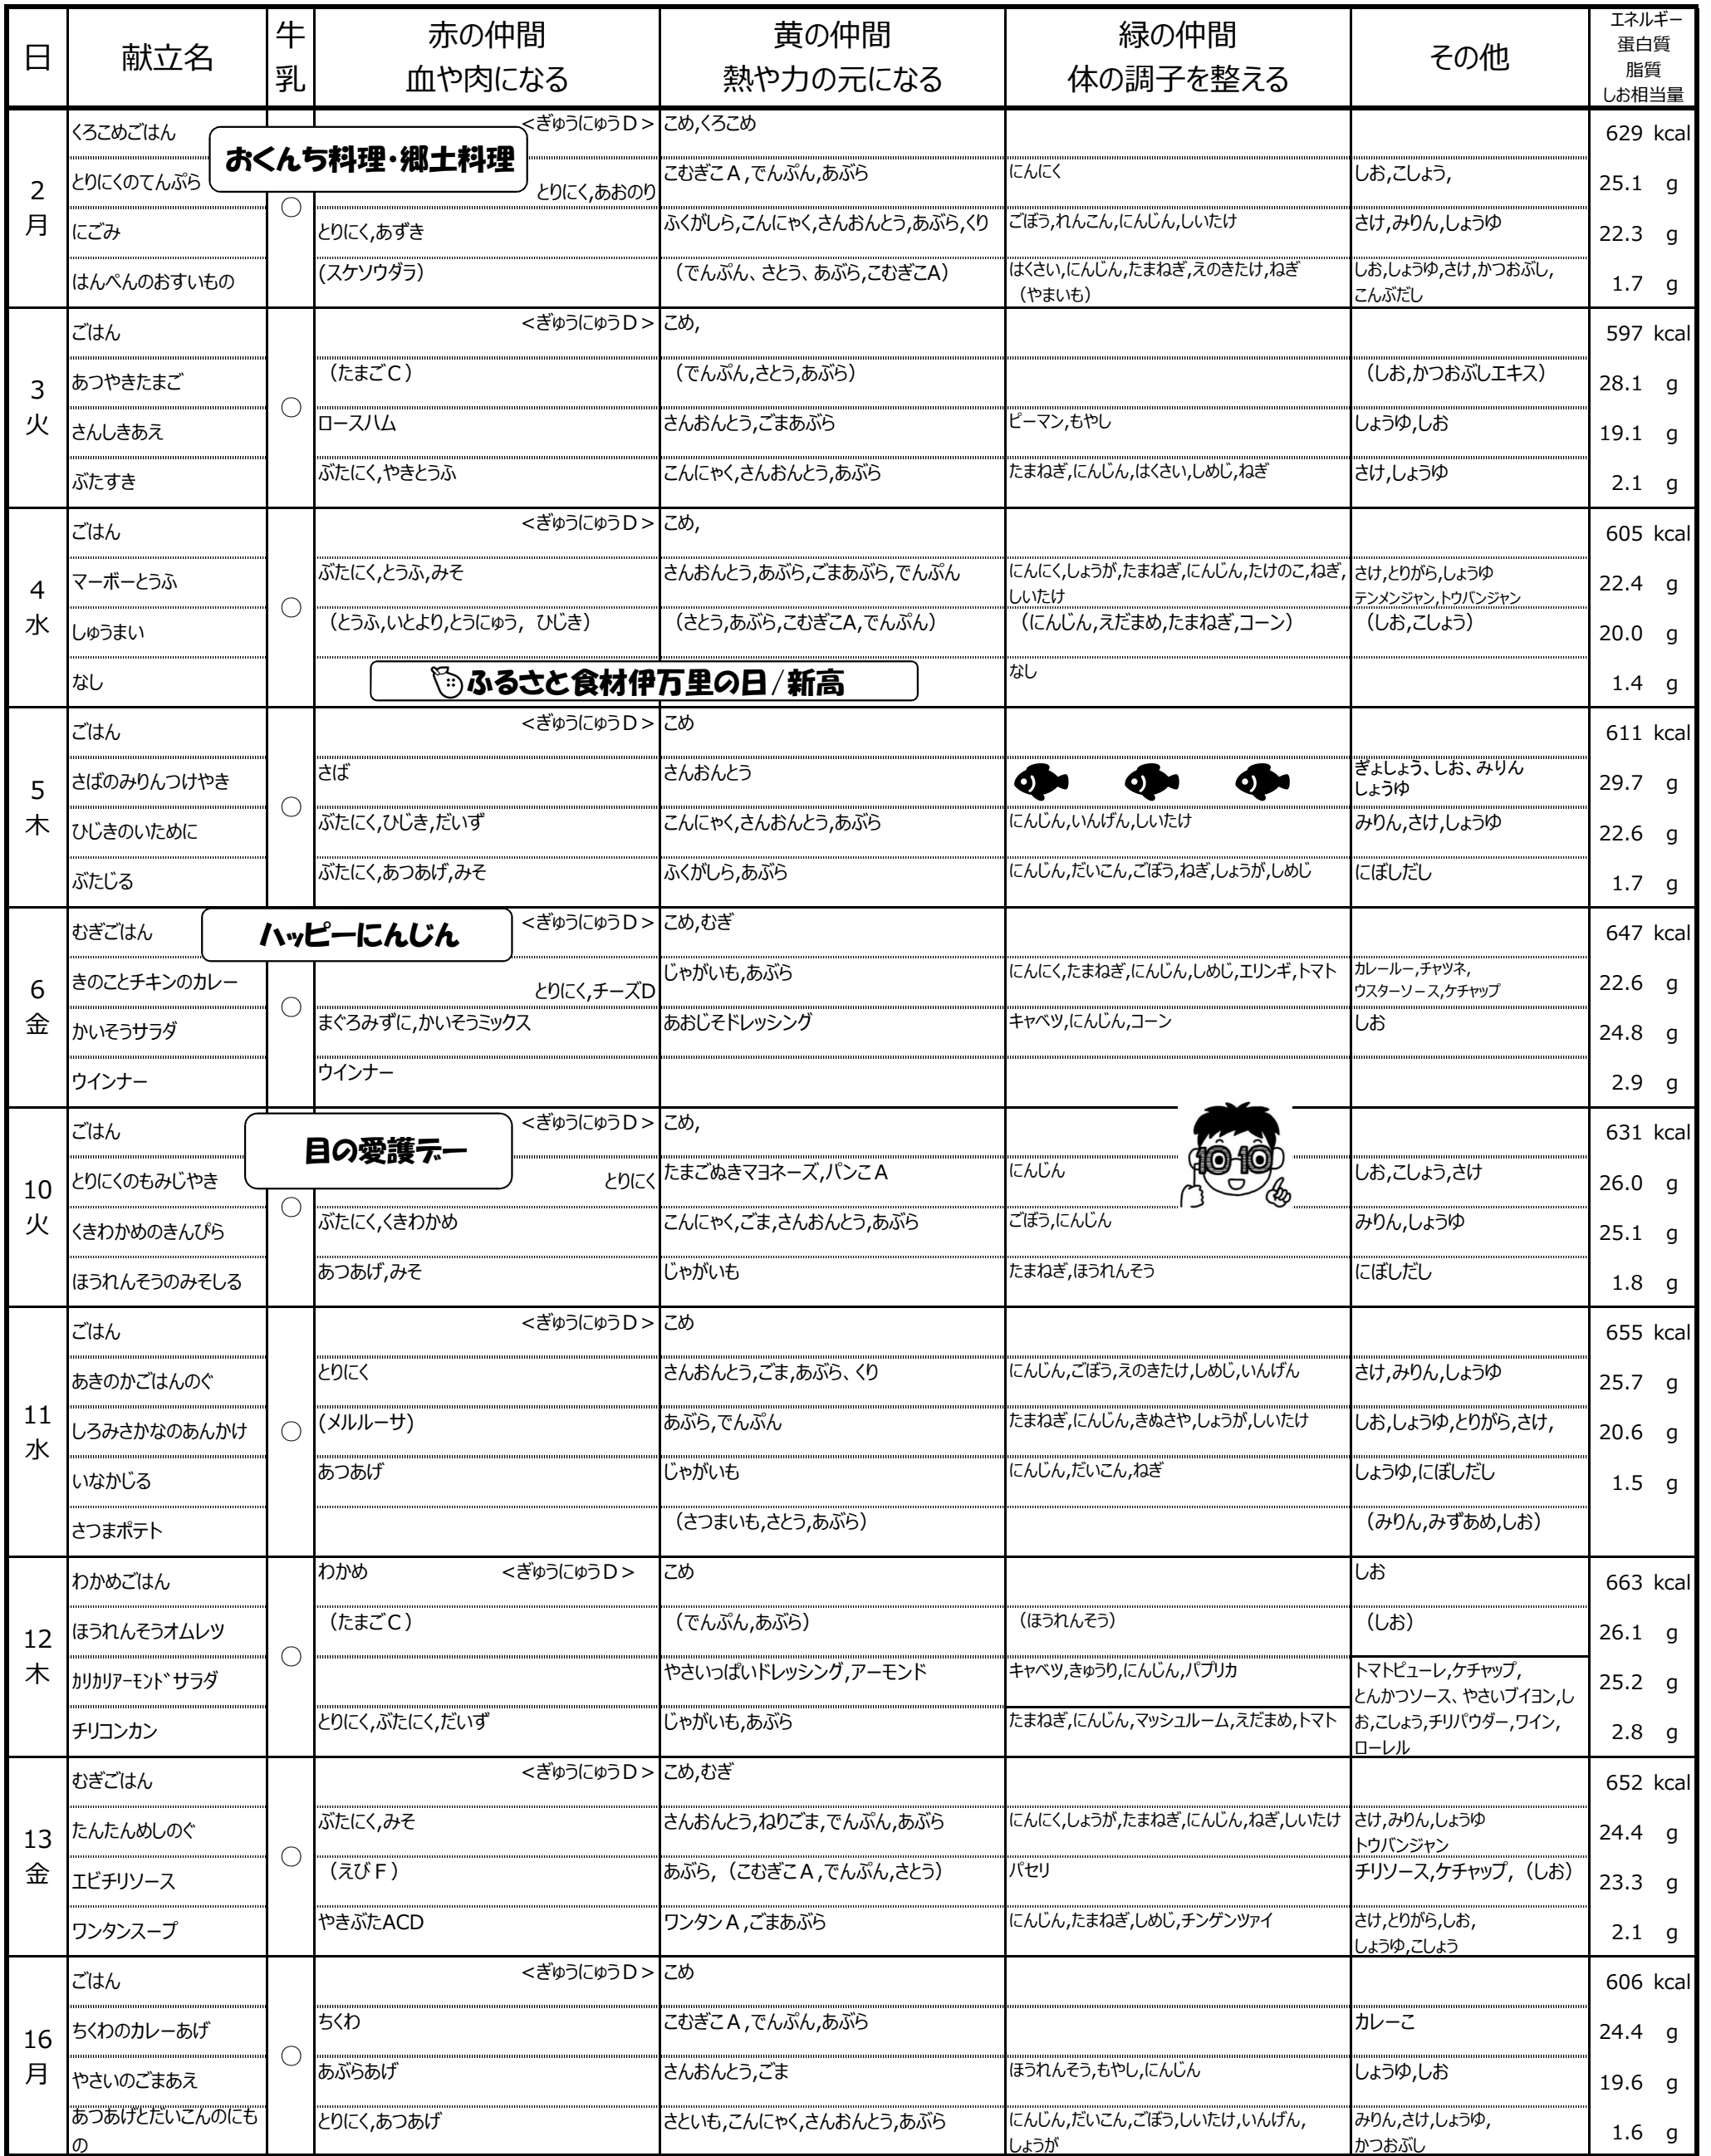 日 献立名 牛乳 赤の仲間 血や肉になる 黄の仲間 熱や力の元になる 緑の仲間 体の調子を整える その他 エネルギー 蛋白質 脂質 しお相当量
2 月 ○
おくんち料理・郷土料理
くろこめごはん <ぎゅうにゅうD> こめ,くろこめ 629 kcal
とりにくのてんぷら とりにく,あおのり こむぎこA,でんぷん,あぶら にんにく しお,こしょう, 25.1 g
にごみ とりにく,あずき ふくがしら,こんにゃく,さんおんとう,あぶら,くり ごぼう,れんこん,にんじん,しいたけ さけ,みりん,しょうゆ 22.3 g
はんぺんのおすいもの (スケソウダラ) (でんぷん、さとう、あぶら,こむぎこA) はくさい,にんじん,たまねぎ,えのきたけ,ねぎ (やまいも) しお,しょうゆ,さけ,かつおぶし, こんぶだし 1.7 g
3 火 ○
ごはん <ぎゅうにゅうD> こめ, 597 kcal
あつやきたまご (たまごC) (でんぷん,さとう,あぶら) (しお,かつおぶしエキス) 28.1 g
さんしきあえ ロースハム さんおんとう,ごまあぶら ピーマン,もやし しょうゆ,しお 19.1 g
ぶたすき ぶたにく,やきとうふ こんにゃく,さんおんとう,あぶら たまねぎ,にんじん,はくさい,しめじ,ねぎ さけ,しょうゆ 2.1 g
4 水 ○
ごはん <ぎゅうにゅうD> こめ, 605 kcal
マーボーとうふ ぶたにく,とうふ,みそ さんおんとう,あぶら,ごまあぶら,でんぷん にんにく,しょうが,たまねぎ,にんじん,たけのこ,ねぎ, しいたけ さけ,とりがら,しょうゆ テンメンジャン,トウバンジャン 22.4 g
しゅうまい (とうふ,いとより,とうにゅう, ひじき) (さとう,あぶら,こむぎこA,でんぷん) (にんじん,えだまめ,たまねぎ,コーン) (しお,こしょう) 20.0 g
なし ふるさと食材伊万里の日/新高 なし 1.4 g
5 木 ○
ごはん <ぎゅうにゅうD> こめ 611 kcal
さばのみりんつけやき さば さんおんとう ぎょしょう、しお、みりん しょうゆ 29.7 g
ひじきのいために ぶたにく,ひじき,だいず こんにゃく,さんおんとう,あぶら にんじん,いんげん,しいたけ みりん,さけ,しょうゆ 22.6 g
ぶたじる ぶたにく,あつあげ,みそ ふくがしら,あぶら にんじん,だいこん,ごぼう,ねぎ,しょうが,しめじ にぼしだし 1.7 g
6 金 ○
ハッピーにんじん
むぎごはん <ぎゅうにゅうD> こめ,むぎ 647 kcal
きのことチキンのカレー とりにく,チーズD じゃがいも,あぶら にんにく,たまねぎ,にんじん,しめじ,エリンギ,トマト カレールー,チャツネ, ウスターソース,ケチャップ 22.6 g
かいそうサラダ まぐろみずに,かいそうミックス あおじそドレッシング キャベツ,にんじん,コーン しお 24.8 g
ウインナー ウインナー 2.9 g
10 火 ○
目の愛護デー
10 10
ごはん <ぎゅうにゅうD> こめ, 631 kcal
とりにくのもみじやき とりにく たまごぬきマヨネーズ,パンこA にんじん しお,こしょう,さけ 26.0 g
くきわかめのきんぴら ぶたにく,くきわかめ こんにゃく,ごま,さんおんとう,あぶら ごぼう,にんじん みりん,しょうゆ 25.1 g
ほうれんそうのみそしる あつあげ,みそ じゃがいも たまねぎ,ほうれんそう にぼしだし 1.8 g
11 水 ○
ごはん <ぎゅうにゅうD> こめ 655 kcal
あきのかごはんのぐ とりにく さんおんとう,ごま,あぶら、くり にんじん,ごぼう,えのきたけ,しめじ,いんげん さけ,みりん,しょうゆ 25.7 g
しろみさかなのあんかけ (メルルーサ) あぶら,でんぷん たまねぎ,にんじん,きぬさや,しょうが,しいたけ しお,しょうゆ,とりがら,さけ, 20.6 g
いなかじる あつあげ じゃがいも にんじん,だいこん,ねぎ しょうゆ,にぼしだし 1.5 g
さつまポテト (さつまいも,さとう,あぶら) (みりん,みずあめ,しお)
12 木 ○
わかめごはん わかめ <ぎゅうにゅうD> こめ しお 663 kcal
ほうれんそうオムレツ (たまごC) (でんぷん,あぶら) (ほうれんそう) (しお) 26.1 g
ｶﾘｶﾘｱｰﾓﾝﾄﾞサラダ やさいっぱいドレッシング,アーモンド キャベツ,きゅうり,にんじん,パプリカ 25.2 g
チリコンカン とりにく,ぶたにく,だいず じゃがいも,あぶら たまねぎ,にんじん,マッシュルーム,えだまめ,トマト トマトピューレ,ケチャップ, とんかつソース、やさいブイヨン,しお,こしょう,チリパウダー,ワイン, ローレル 2.8 g
13 金 ○
むぎごはん <ぎゅうにゅうD> こめ,むぎ 652 kcal
たんたんめしのぐ ぶたにく,みそ さんおんとう,ねりごま,でんぷん,あぶら にんにく,しょうが,たまねぎ,にんじん,ねぎ,しいたけ さけ,みりん,しょうゆ トウバンジャン 24.4 g
エビチリソース (えびF) あぶら, (こむぎこA,でんぷん,さとう) パセリ チリソース,ケチャップ, (しお) 23.3 g
ワンタンスープ やきぶたACD ワンタンA,ごまあぶら にんじん,たまねぎ,しめじ,チンゲンツァイ さけ,とりがら,しお, しょうゆ,こしょう 2.1 g
16 月 ○
ごはん <ぎゅうにゅうD> こめ 606 kcal
ちくわのカレーあげ ちくわ こむぎこA,でんぷん,あぶら カレーこ 24.4 g
やさいのごまあえ あぶらあげ さんおんとう,ごま ほうれんそう,もやし,にんじん しょうゆ,しお 19.6 g
あつあげとだいこんのにもの とりにく,あつあげ さといも,こんにゃく,さんおんとう,あぶら にんじん,だいこん,ごぼう,しいたけ,いんげん, しょうが みりん,さけ,しょうゆ, かつおぶし 1.6 g